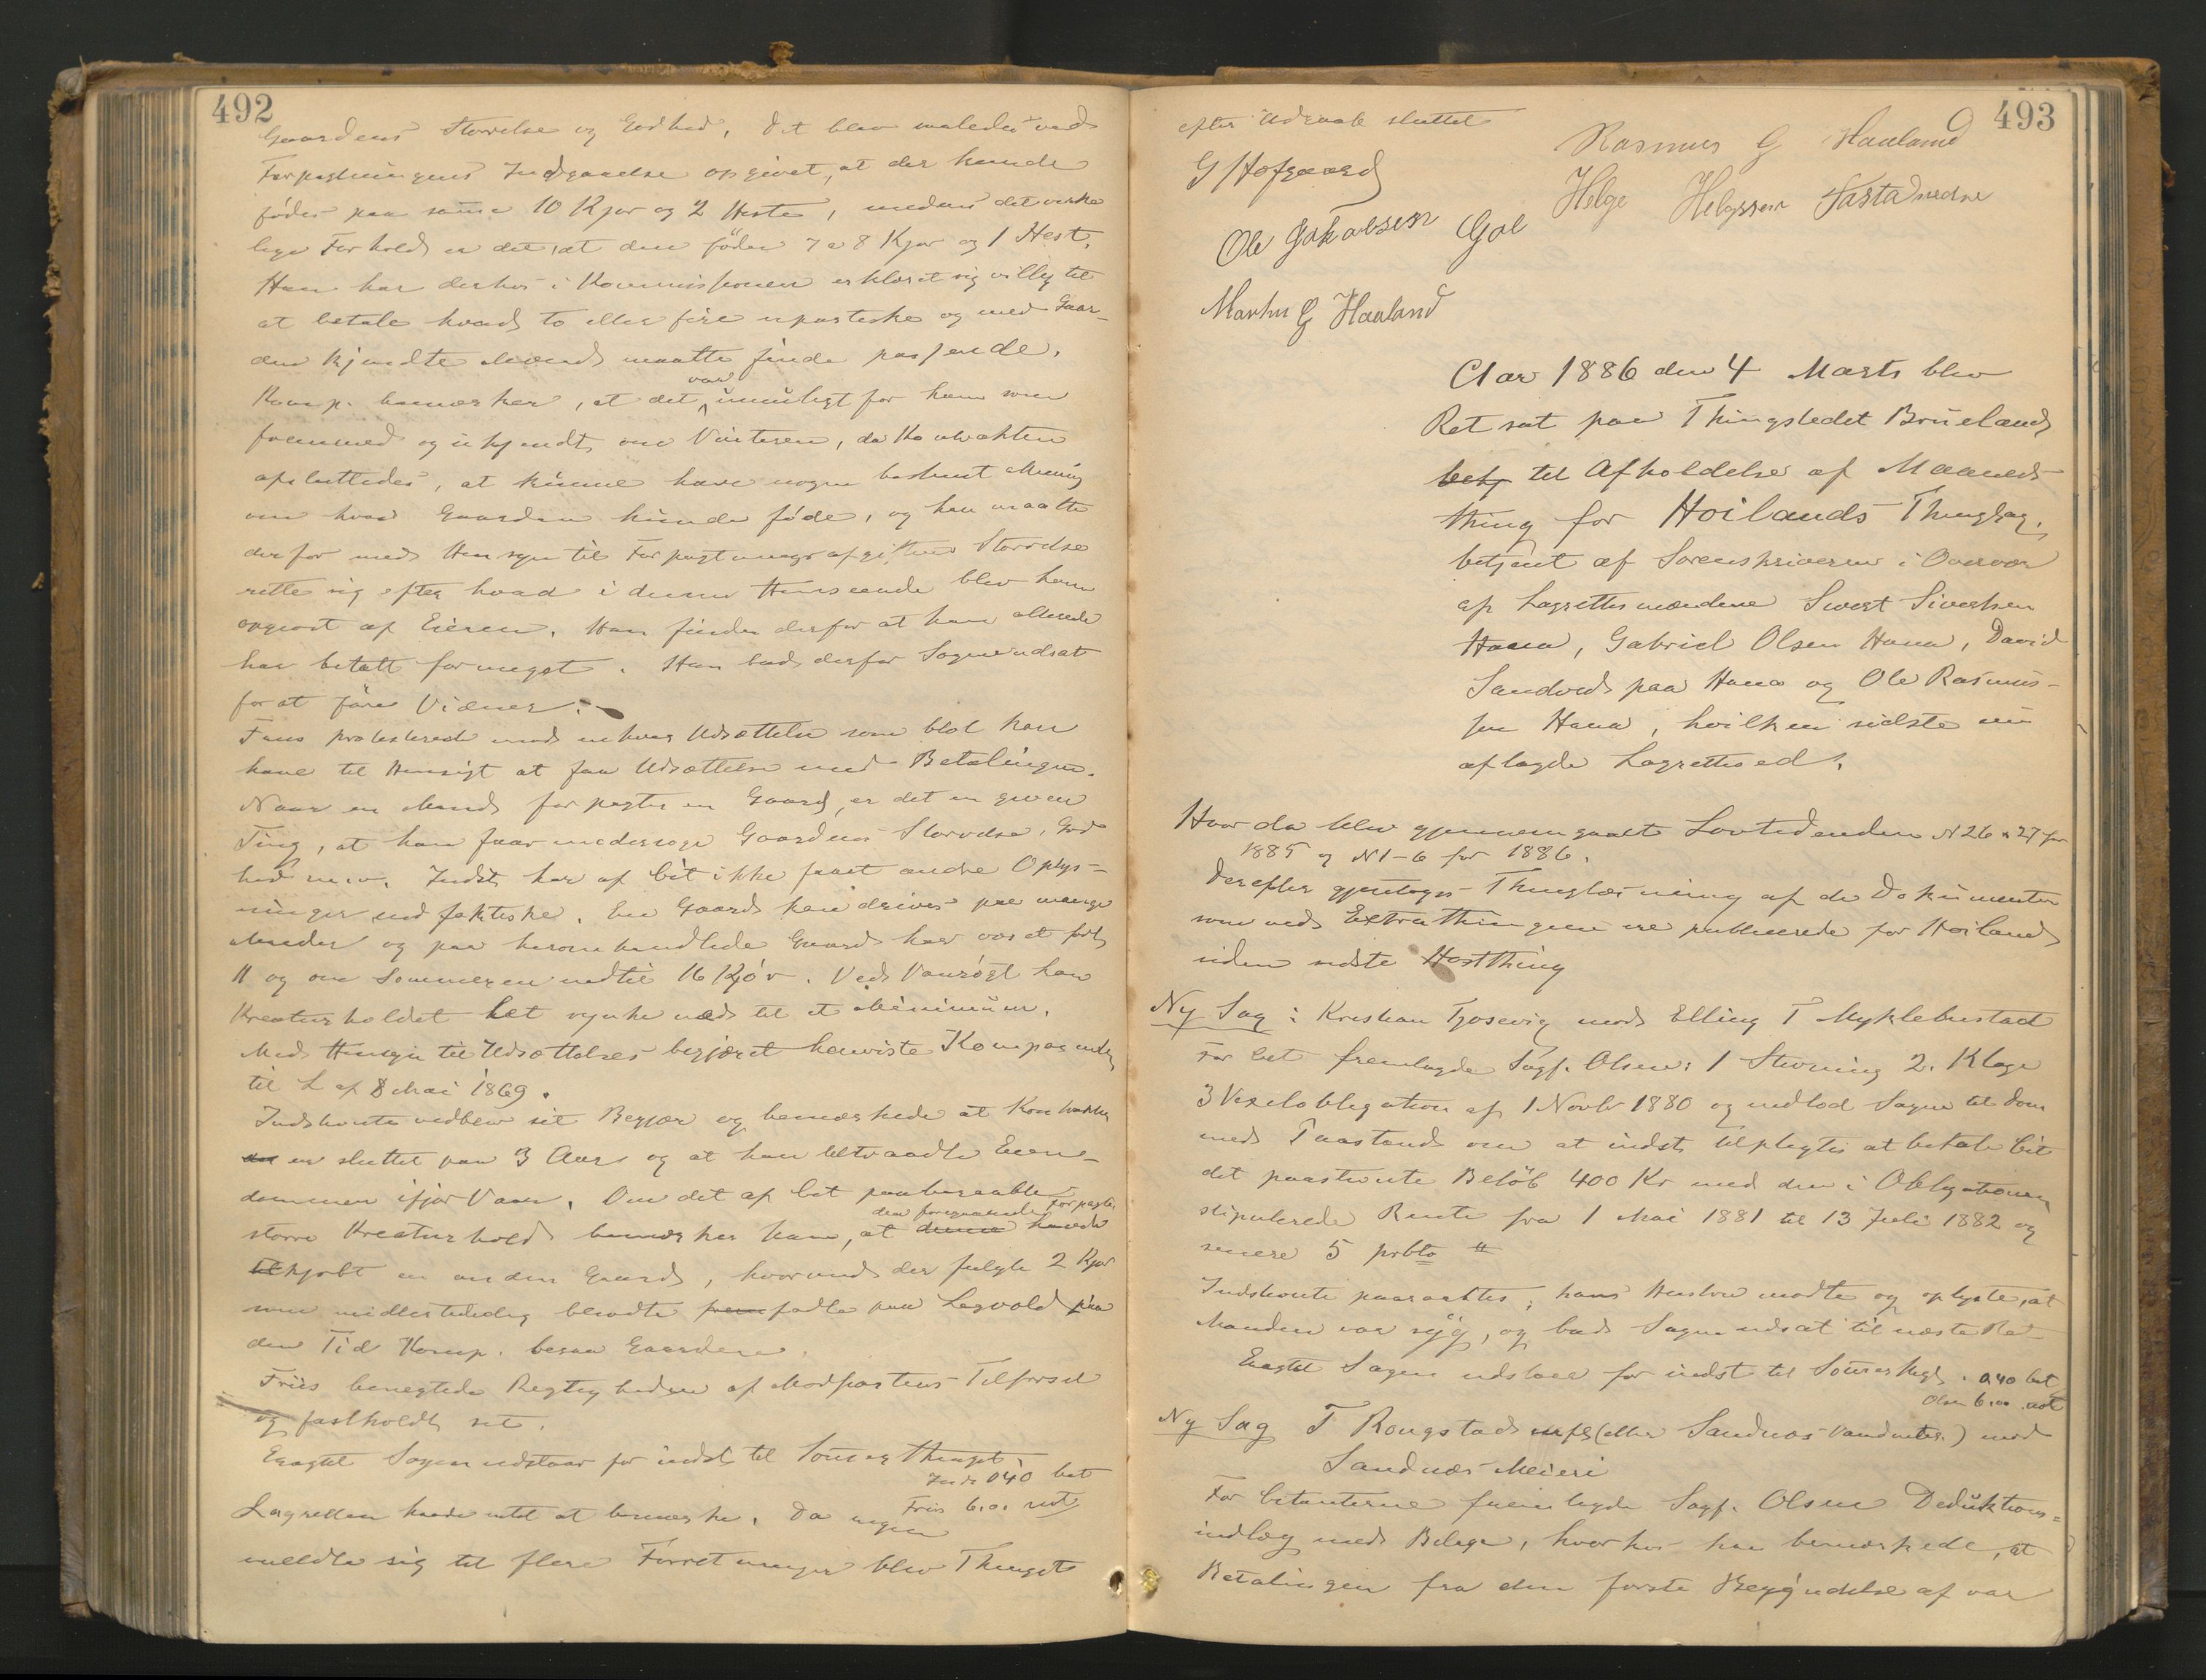 492
Gaardens Størrelse og Godhed. Det blev nemlig ved
Forpagtningens Indgaaelse opgivet, at der kunde
födes paa samme 10 Kjør og 2 Heste, medens det virke
lige Forhold er det, at den föder 7 a 8 Kjør og 1 Hest.
Han har derhos i Kommissionen erklæret sig villig til
at betale hvad to eller fire upartiske og med Gaar-
den kjendte Mænd maatte finde passende.
Komp. bemærker, at det var umuligt for ham som
fremmed og ukjendt om Vinteren, da Kontrakten
afsluttedes, at kunne have nogen bestemt Mening
om hvad Gaarden kunde føde, og han maatte
derfor med Hensyn til Forpagtningsafgiftens Størrelse
rette sig efter hvad i denne Henseende blev ham
opgivet af Eieren. Han finder derfor at han allerede
har betalt formeget. Han bad derfor Sagen udsat
for at føre Vidner.
Friis protesterede mod enhver Udsættelse som blot kan
have til Hensigt at faa Udsættelse med Betalingen.
Naar en Mand forpagter en Gaard, er det en given
Ting, at han faar undersøge Gaardens Størrelse, God-
hed m.v. Indst. har af Cit. ikke faaet andre Oplys-
ninger end faktiske. En Gaard kan drives paa mange
Maader og paa heromhandlede Gaard har været födt
11 og om Sommeren indtil 16 Kjör. Ved Vanrögt kan
Kreaturholdet let synke ned til et Minimum.
Med Hensyn til Udsættelses begjæret henviste Komparenten
til L af 8 Mai 1869.
Indstevnte vedblev sit Begjær og bemærkede at Kontrakten
er sluttet paa 3 Aar og at han tiltraadte Eien-
dommen ifjor Vaar. Om det af Cit. paaberaabte
större Kreaturhold bemærker han, at den foregaaende Forpagter havde
kjøbt en anden Gaard, hvormed der fulgte 2 Kjør
som midlertidig blev födte paa Lagvold paa
den Tid Komp. besaa Gaarden.
Friis benegtede Rigtigheden af Modpartens Tilførsel
og fastholdt sit.
Eragtet Sagen udstaar for indst. til Sommerthinget.
Inds 040 bet
Friis 6.00 rest
Lagretten havde intet at bemærke. Da ingen
meldte sig til flere Forretninger blev Thinget
493
efter Udraab sluttet
G Hofgaard
Rasmus G Haaland
Helge Helgesen Tastadnedre
Ole Jakobsen Gol
Martin G Haaland
Aar 1886 den 4 Marts blev
Ret sat paa Thingstedet Brueland
betj til Afholdelse af Maaneds-
thing for Høilands Thinglag,
betjent af Sorenskriveren i Overvær
af Lagrettesmændene Sivert Sivertsen
Hana, Gabriel Olsen Hana, David
Sandved paa Hana og Ole Rasmus-
sen Hana, hvilken sidste nu
aflagde Lagrettesed.
Hvor da blev gjennemgaaet Lovtidenden N 26 & 27 for
1885 og N 1-6 for 1886.
Derefter gjentoges Thinglæsning af de Dokumenter
som ved Extrathingene ere publicerede for Høiland
siden sidste Høstthing
Ny Sag: Kristian Tjosevig mod Elling T Myklebustad
For Cit. fremlagde Sagf. Olsen: 1 Stevning 2. Klage
3 Vexelobligation af 1 Novbr 1880 og indlod Sagen til Dom
med Paastand om at indst. tilpligtes at betale Cit.
det paastevnte Beløb 400 Kr med den i Obligationen
stipulerede Rente fra 1 Mai 1881 til 13 Juli 1882 og
senere 5 prCto
Indstevnte paaraabtes; hans Hustru mødte og oplyste, at
Manden var syg, og bad Sagen udsat til næste Ret
Eragtet Sagen udstaar for indst til Sommerthgt. 0.40 bet
Olsen 6.00 rest
Ny Sag T Rongstad m fl (eller Sandnæs Vandinter.) mod
Sandnæs Meieri
For Citanterne fremlagde Sagf. Olsen Deduktions-
indlæg med Bilage, hvorhos han bemærkede, at
Betalingen fra den første Begyndelse af var